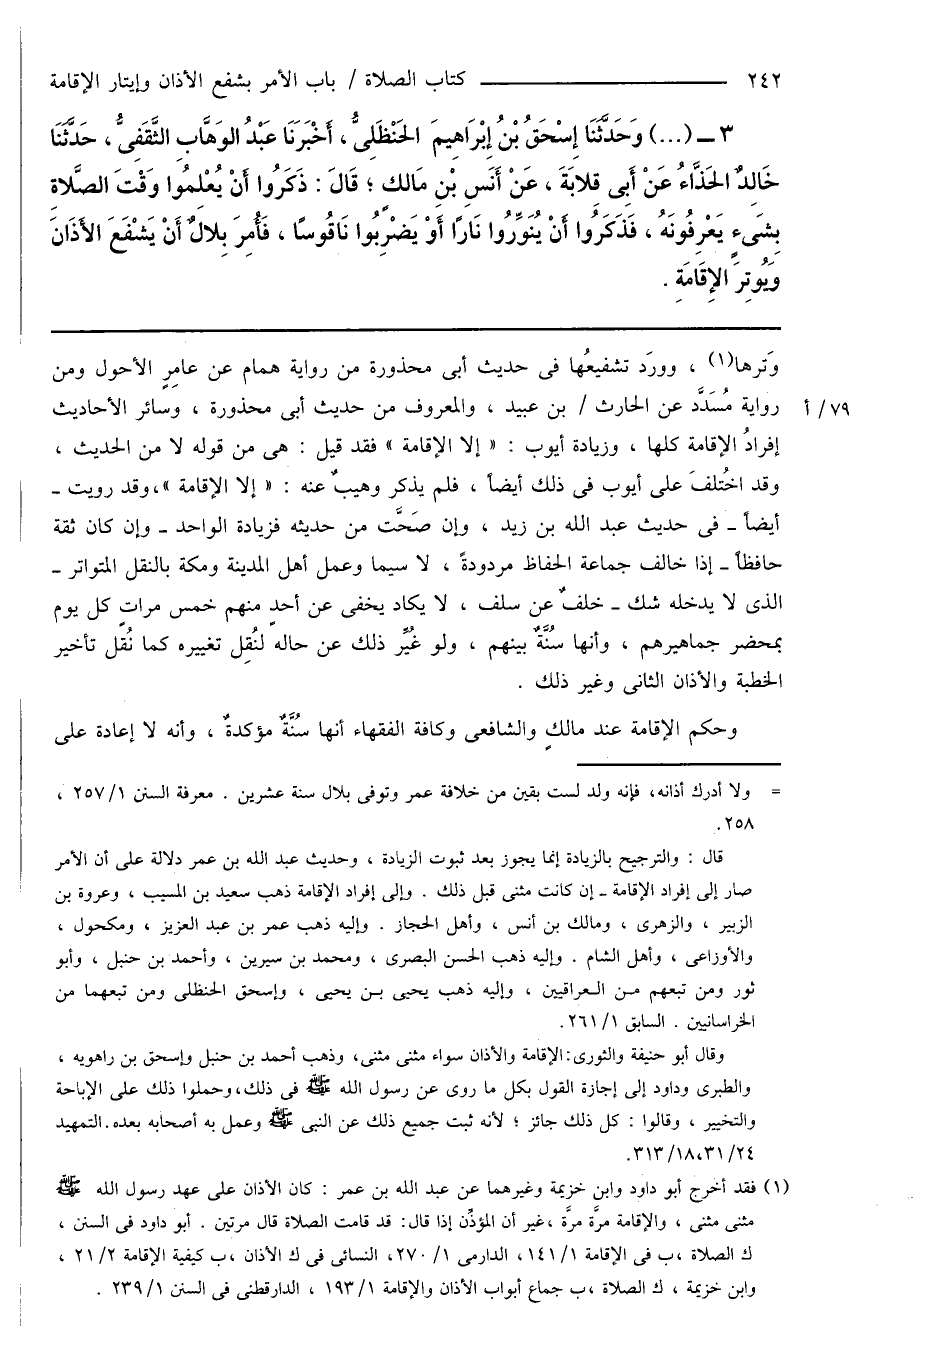 ٢٤٢ ــــــــــــــــــــ كتاب الصلاة / باب الأمر بشفع الأذان وإيتار الإقامة
٣ ــ (...) وَحَدَّثَنَا إِسْحَقُ بْنُ إِبْرَاهِيمَ الحَنْظَلِىُّ ، أَخْبَرَنَا عَبْدُ الوَهَّابِ الثَّقَفِىُّ ، حَدَّثَنَا
خَالِدٌ الحَذَّاءُ عَنْ أَبِى قِلابَةَ ، عَنْ أَنَسِ بْنِ مَالِكٍ ؛ قَالَ : ذَكَرُوا أَنْ يُعْلِمُوا وَقْتَ الصَّلاةِ
بِشَىءٍ يَعْرِفُونَهُ ، فَذَكَرُوا أَنْ يُنَوِّرُوا نَارًا أَوْ يَضْرِبُوا نَاقُوسًا ، فَأُمِرَ بِلالٌ أَنْ يَشْفَعَ الأَذَانَ
وَيُوتِرَ الإِقَامَةِ .
وَترها(١) ، وورَد تشفيعُها فى حديث أبى محذورة من رواية همام عن عامرٍ الأحول ومن
رواية مُسَدَّد عن الحارث / بن عبيد ، والمعروف من حديث أبى محذورة ، وسائر الأحاديث
٧٩/ أ
إفرادُ الإقامة كلها ، وزيادة أيوب : « إلا الإقامة » فقد قيل : هى من قوله لا من الحديث ،
وقد اختُلفَ على أيوب فى ذلك أيضاً ، فلم يذكر وهيبٌ عنه : « إلا الإقامة »،وقد رويت ــ
أيضاً ــ فى حديث عبد الله بن زيد ، وإن صَحَّت من حديثه فزيادة الواحد ــ وإن كان ثقة
حافظاً ــ إذا خالف جماعة الحفاظ مردودةً ، لا سيما وعمل أهل المدينة ومكة بالنقل المتواتر ــ
الذى لا يدخله شك ــ خلفٌ عن سلف ، لا يكاد يخفى عن أحدٍ منهم خمس مراتٍ كل يوم
بمحضر جماهيرهم ، وأنها سُنَّةٌ بينهم ، ولو غُيِّر ذلك عن حاله لنُقِل تغييره كما نُقل تأخير
الخطبة والأذان الثانى وغير ذلك .
وحكم الإقامة عند مالكٍ والشافعى وكافة الفقهاء أنها سُنَّةٌ مؤكدةٌ ، وأنه لا إعادة على
= ولا أدرك أذانه، فإنه ولد لست بقين من خلافة عمر وتوفى بلال سنة عشرين . معرفة السنن ١/ ٢٥٧ ،
٢٥٨.
قال : والترجيح بالزيادة إنما يجوز بعد ثبوت الزيادة ، وحديث عبد الله بن عمر دلالة على أن الأمر
صار إلى إفراد الإقامة ــ إن كانت مثنى قبل ذلك . وإلى إفراد الإقامة ذهب سعيد بن المسيب ، وعروة بن
الزبير ، والزهرى ، ومالك بن أنس ، وأهل الحجاز . وإليه ذهب عمر بن عبد العزيز ، ومكحول ،
والأوزاعى ، وأهل الشام . وإليه ذهب الحسن البصرى ، ومحمد بن سيرين ، وأحمد بن حنبل ، وأبو
ثور ومن تبعهم مـن العـراقيين ، وإليه ذهب يحيى بـن يحيى ، وإسحق الحنظلى ومن تبعهما من
الخراسانيين . السابق ١/ ٢٦١.
وقال أبو حنيفة والثورى: الإقامة والأذان سواء مثنى مثنى، وذهب أحمد بن حنبل وإسحق بن راهويه ،
والطبرى وداود إلى إجازة القول بكل ما روى عن رسول الله ﷺ فى ذلك،وحملوا ذلك على الإباحة
والتخيير ، وقالوا : كل ذلك جائز ؛ لأنه ثبت جميع ذلك عن النبى ﷺ وعمل به أصحابه بعده.التمهيد
٢٤/ ٣١،١٨/ ٣١٣.
(١) فقد أخرج أبو داود وابن خزيمة وغيرهما عن عبد الله بن عمر : كان الأذان على عهد رسول الله ﷺ
مثنى مثنى ، والإقامة مرَّة مرَّة ،غير أن المؤذِّن إذا قال: قد قامت الصلاة قال مرتين . أبو داود فى السنن ،
ك الصلاة ،ب فى الإقامة ١/ ١٤١، الدارمى ١/ ٢٧٠، النسائى فى ك الأذان ،ب كيفية الإقامة ٢/ ٢١ ،
وابن خزيمة ، ك الصلاة ،ب جماع أبواب الأذان والإقامة ١/ ١٩٣ ، الدارقطنى فى السنن ١/ ٢٣٩ .